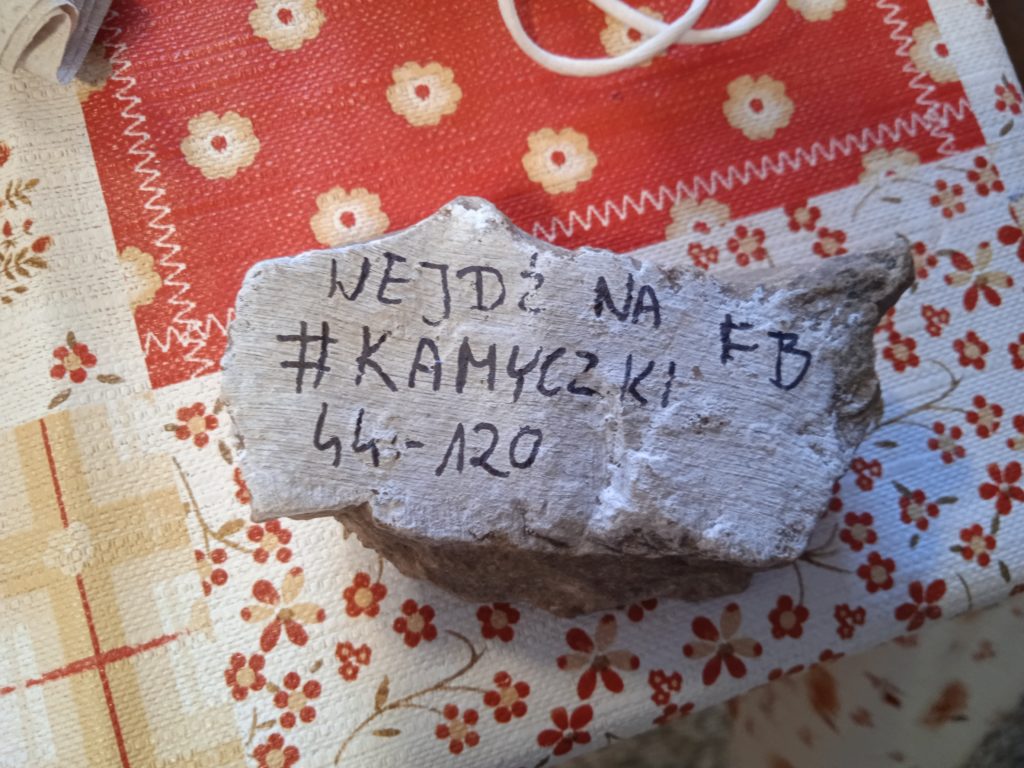 WEJDŹ NA FB
#KAMYCZKI
44-120